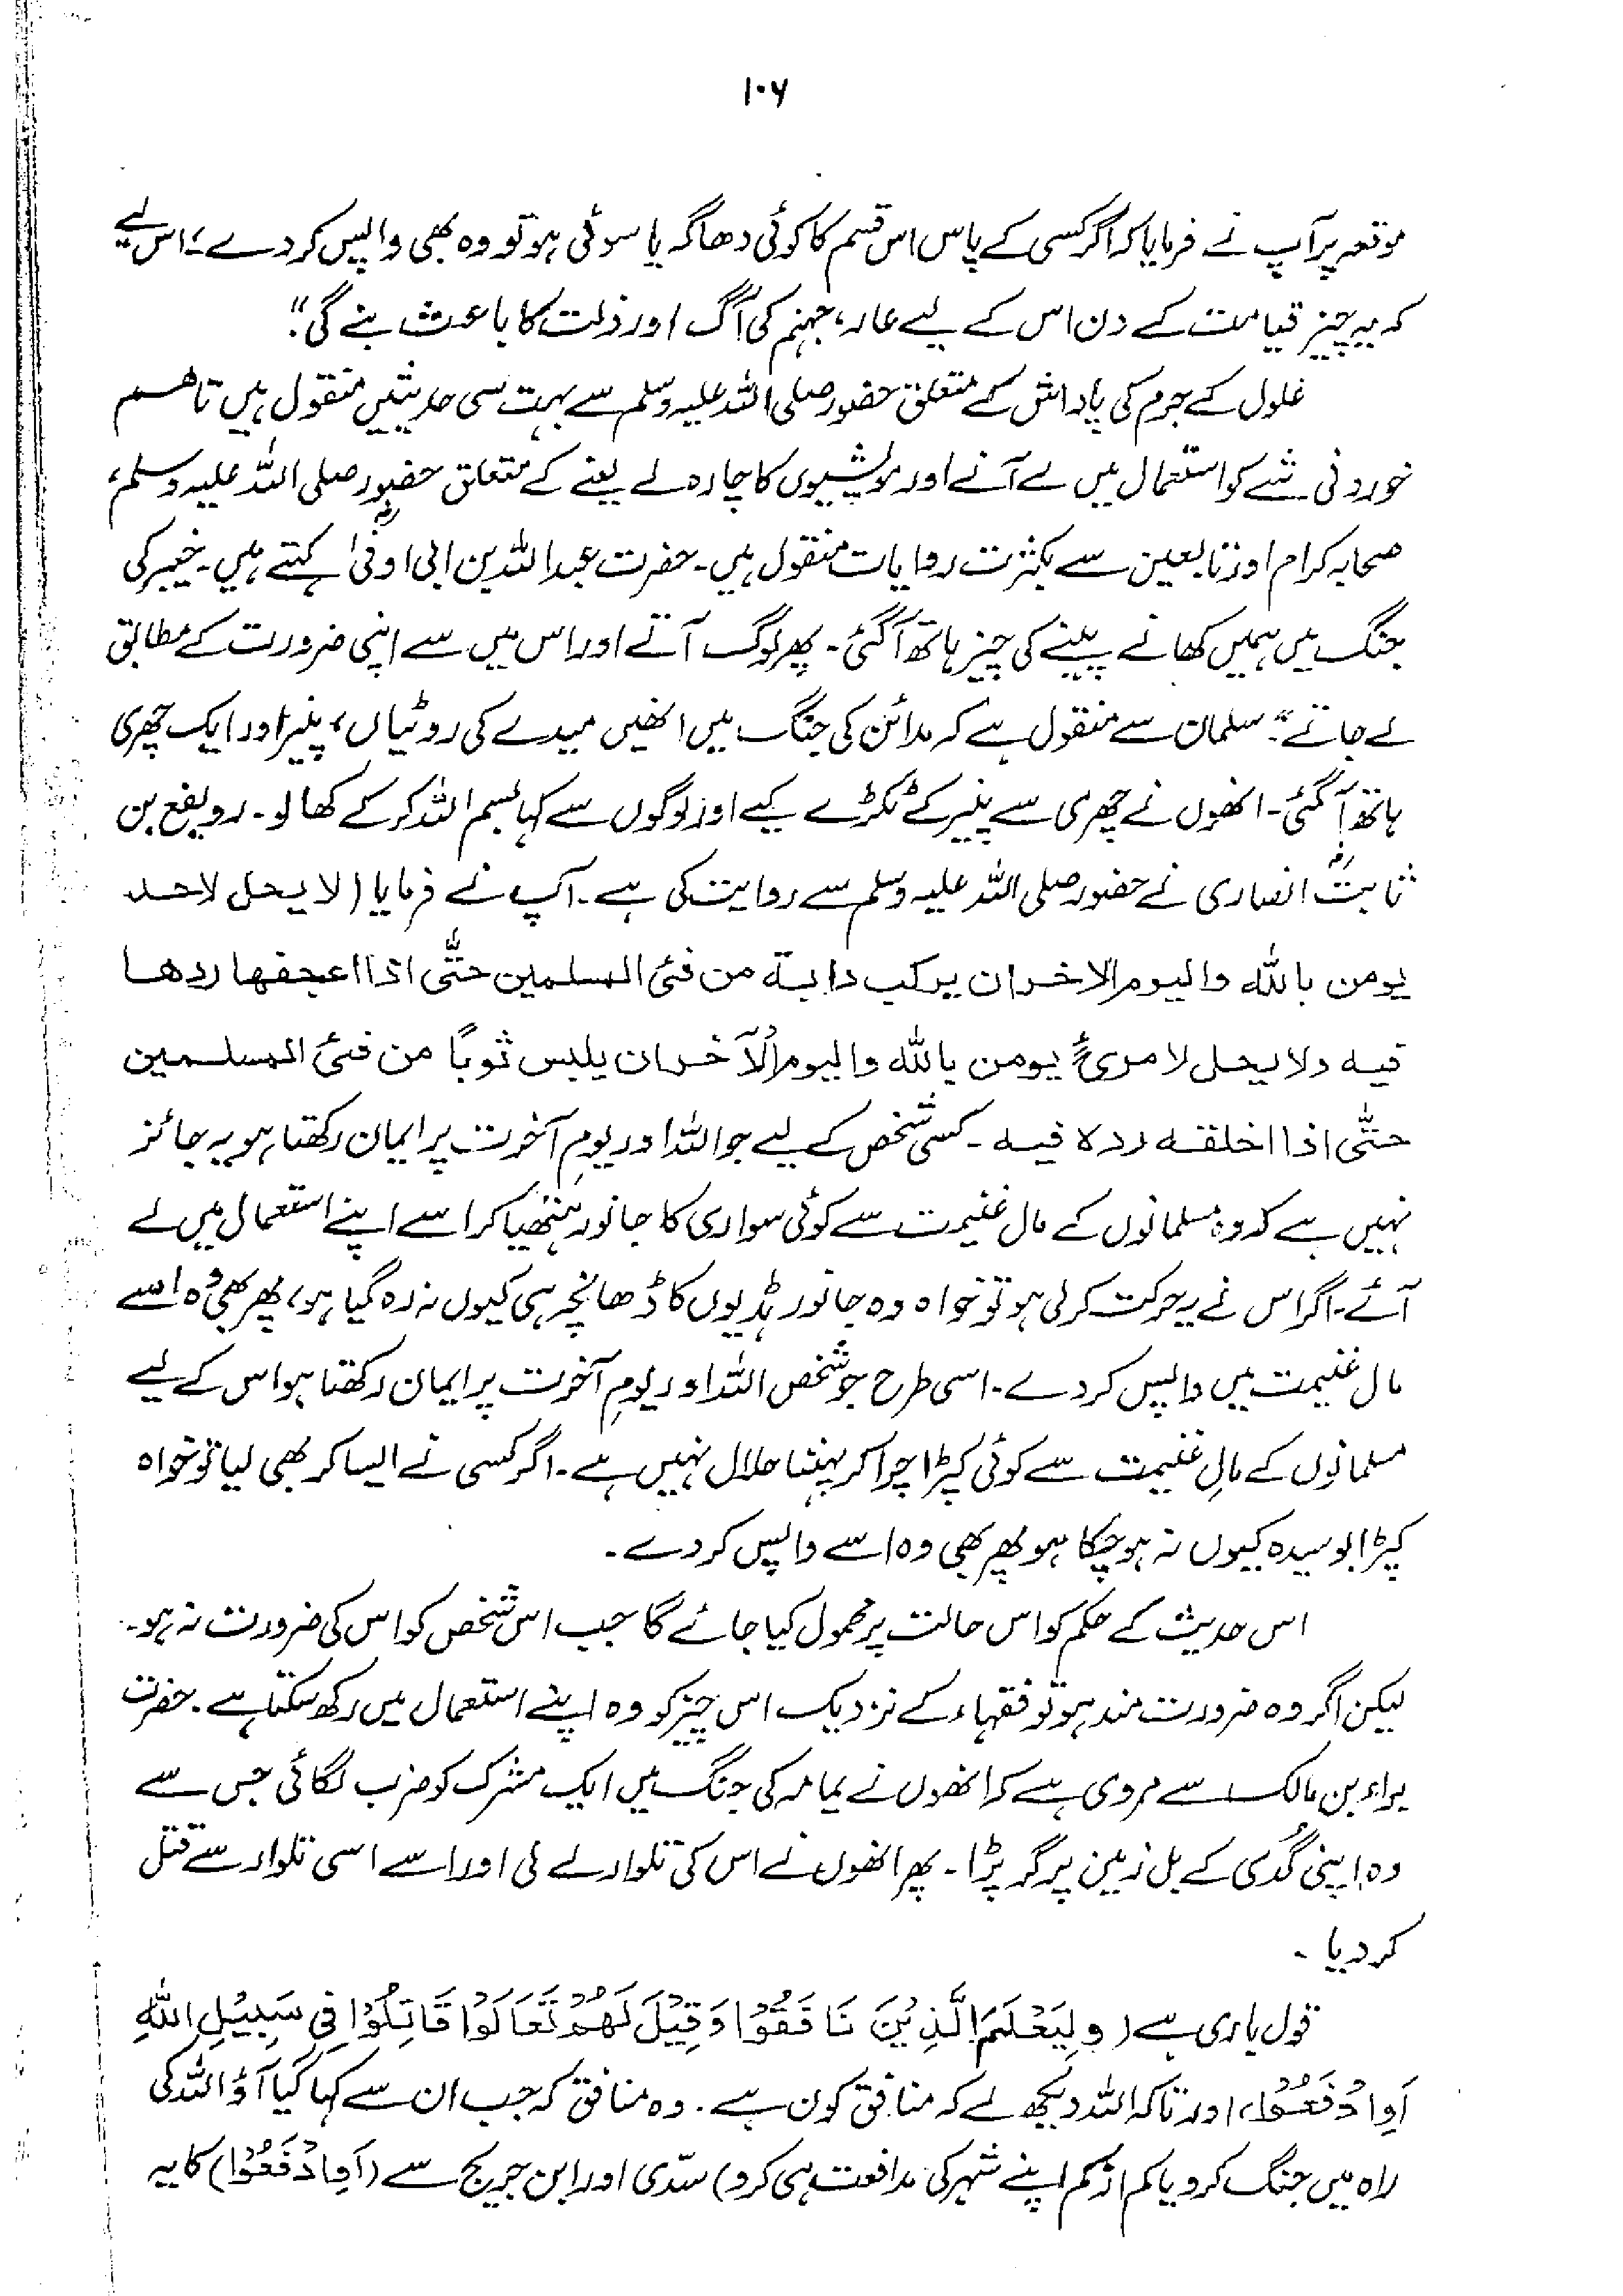 ۱۰۶
موقعہ پر آپ نے فرمایا کہ اگر کسی کے پاس اس قسم کا کوئی دھاگہ یا سوئی ہو تو وہ بھی واپس کر دے؛ اس لیے
کہ یہ چیز قیامت کے دن اس کے لیے عار، جہنم کی آگ اور ذلت کا باعث بنے گی"۔
غلول کے جرم کی پاداش کے متعلق حضور صلی اللہ علیہ وسلم سے بہت سی حدیثیں منقول ہیں تاہم
خوردنی شے کو استعمال میں لے آنے اور مویشیوں کا چارہ لے لینے کے متعلق حضور صلی اللہ علیہ وسلم،
صحابہ کرام اور تابعین سے بکثرت روایات منقول ہیں۔ حضرت عبداللہ بن ابی اوفیٰؓ کہتے ہیں۔ خیبر کی
جنگ میں ہمیں کھانے پینے کی چیز ہاتھ آگئی۔ پھر لوگ آتے اور اس میں سے اپنی ضرورت کے مطابق
لے جاتے"۔ سلمان سے منقول ہے کہ مدائن کی جنگ میں انھیں میدے کی روٹیاں، پنیر اور ایک چھری
ہاتھ آگئی۔ انھوں نے چھری سے پنیر کے ٹکڑے کیے اور لوگوں سے کہا بسم اللہ کر کے کھا لو۔ رویفع بن
ثابتؓ انصاری نے حضور صلی اللہ علیہ وسلم سے روایت کی ہے۔ آپ نے فرمایا (لا یحل لاحد
یومن باللہ والیوم الاخر ان یرکب دابۃ من فئ المسلمین حتّٰی اذا اعجفھا ردھا
فیہ ولا یحل لامرئٍ یومن باللہ والیوم الآخر ان یلبس ثوباً من فئ المسلمین
حتّٰی اذا اخلقہ ردہ فیہ۔ کسی شخص کے لیے جو اللہ اور یومِ آخرت پر ایمان رکھتا ہو یہ جائز
نہیں ہے کہ وہ مسلمانوں کے مال غنیمت سے کوئی سواری کا جانور ہتھیا کر اسے اپنے استعمال میں لے
آئے۔ اگر اس نے یہ حرکت کرلی ہو تو خواہ وہ جانور ہڈیوں کا ڈھانچہ ہی کیوں نہ رہ گیا ہو، پھر بھی وہ اسے
مال غنیمت میں واپس کر دے۔ اسی طرح جو شخص اللہ اور یومِ آخرت پر ایمان رکھتا ہو اس کے لیے
مسلمانوں کے مالِ غنیمت سے کوئی کپڑا چرا کر پہننا حلال نہیں ہے۔ اگر کسی نے ایسا کر بھی لیا تو خواہ
کپڑا بوسیدہ کیوں نہ ہو چکا ہو پھر بھی وہ اسے واپس کر دے۔
اس حدیث کے حکم کو اس حالت پر محمول کیا جائے گا جب اس شخص کو اس کی ضرورت نہ ہو۔
لیکن اگر وہ ضرورت مند ہو تو فقہاء کے نزدیک اس چیز کو وہ اپنے استعمال میں رکھ سکتا ہے۔ حضرت
براء بن مالک سے مروی ہے کہ انھوں نے یمامہ کی جنگ میں ایک مشرک کو ضرب لگائی جس سے
وہ اپنی گدّی کے بل زمین پر گر پڑا۔ پھر انھوں نے اس کی تلوار لے لی اور اسے اسی تلوار سے قتل
کر دیا۔
قول باری ہے (وَلِیَعْلَمَ الَّذِیْنَ نَافَقُوْا وَقِیْلَ لَھُمْ تَعَالَوْا قَاتِلُوْا فِی سَبِیْلِ اللہِ
اَوِادْفَعُوْا، اور تاکہ اللہ دیکھ لے کہ منافق کون ہے۔ وہ منافق کہ جب ان سے کہا گیا آؤ اللہ کی
راہ میں جنگ کرو یا کم از کم اپنے شہر کی مدافعت ہی کرو) سدّی اور ابن جریج سے (اَوِادْفَعُوْا) کا یہ